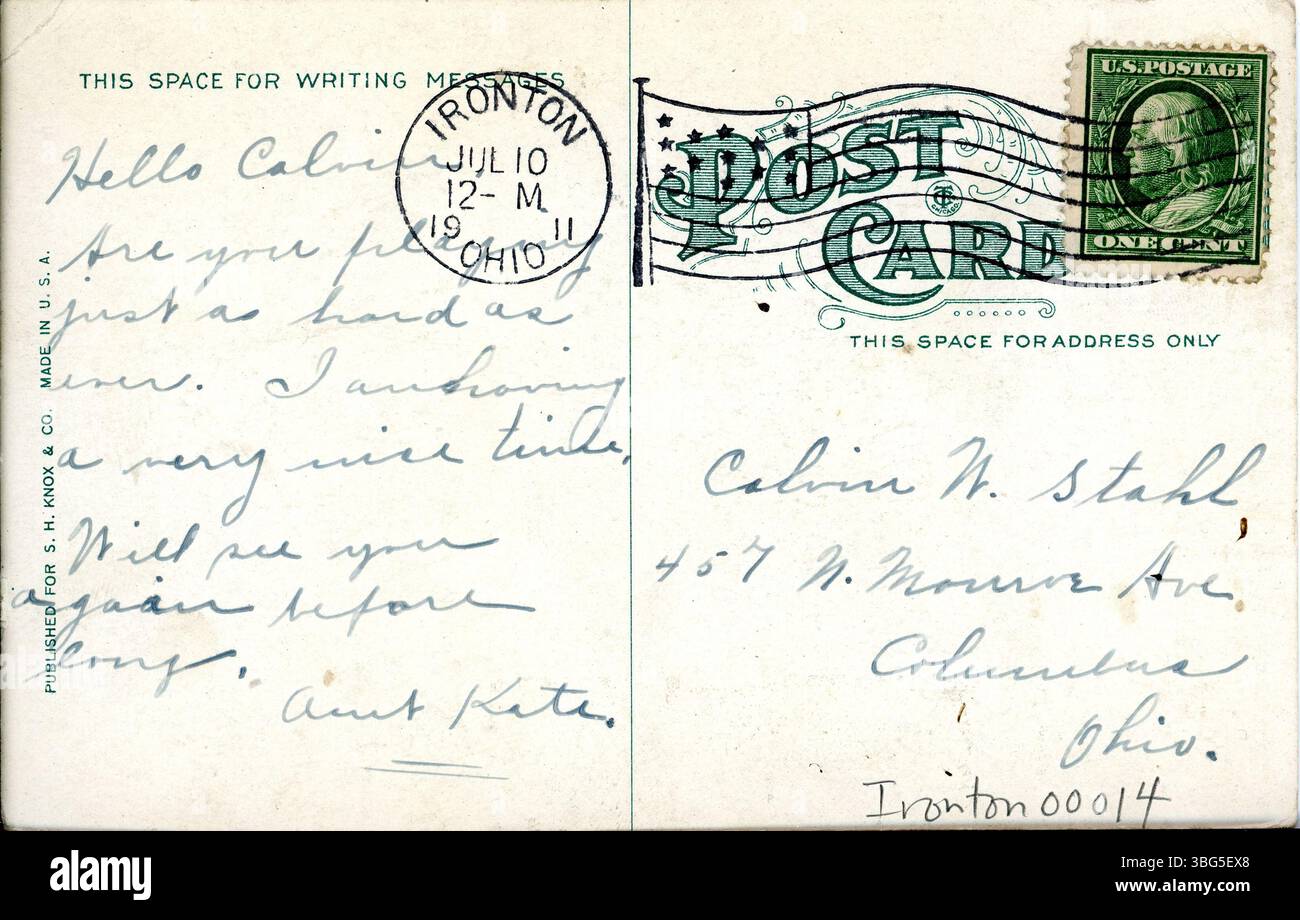 THIS SPACE FOR WRITING MESSAGES
Hello Calvin
Are you playing
just as hard as
ever. I am having
a very nice time.
Will see you
again before
long.
Aunt Kate.
PUBLISHED FOR S. H. KNOX & CO. MADE IN U. S. A.
IRONTON
JUL 10
12- M
19 11
OHIO
POST
CARD
CHICAGO
U.S. POSTAGE
ONE CENT
THIS SPACE FOR ADDRESS ONLY
Calvin W. Stahl
457 N. Monroe Ave
Columbus
Ohio.
Ironton00014
alamy
Image ID: 3BG5EX8
www.alamy.com